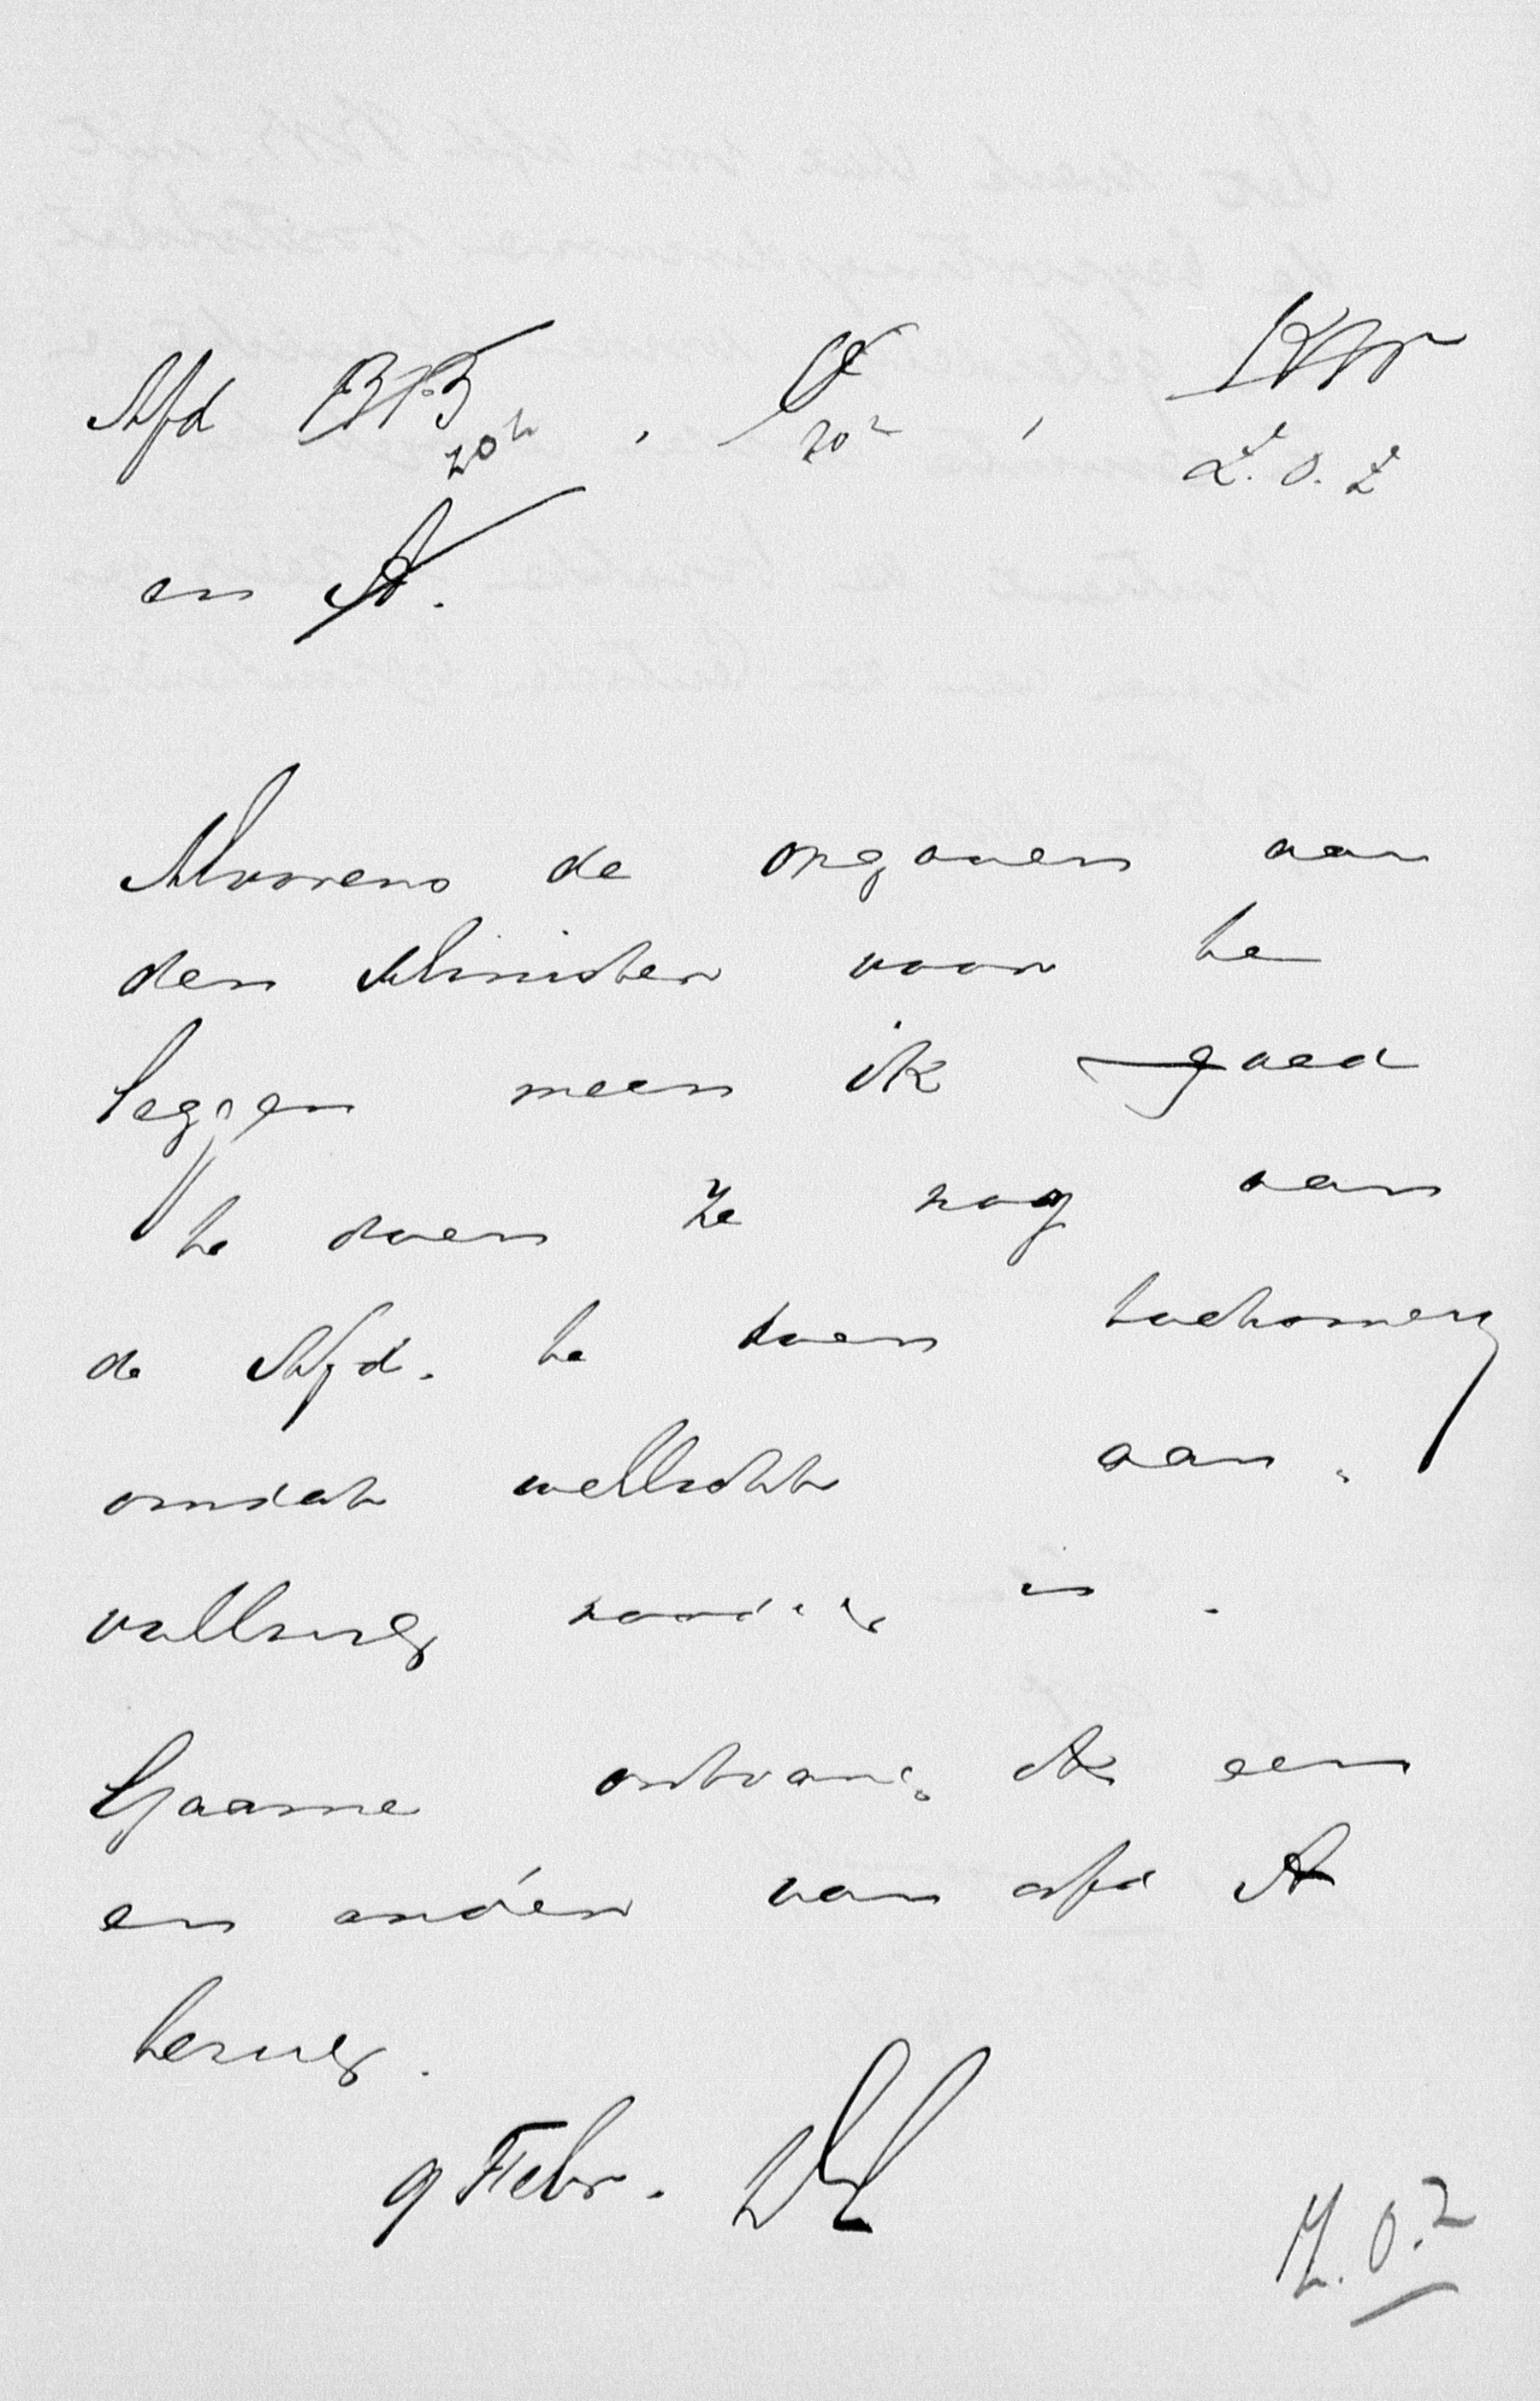 Afd BB , C , KW
zoz zoz Z.O.Z
en A.
Alvorens de opgaven aan
den Minister voor te
leggen meen ik goed
te doen ze nog aan
de Afd. te doen toekomen
omdat wellicht aan-
vulling noodig is .
Gaarne ontvang ik een
en ander van afd A
terug .
9 Febr .
Z.O.Z